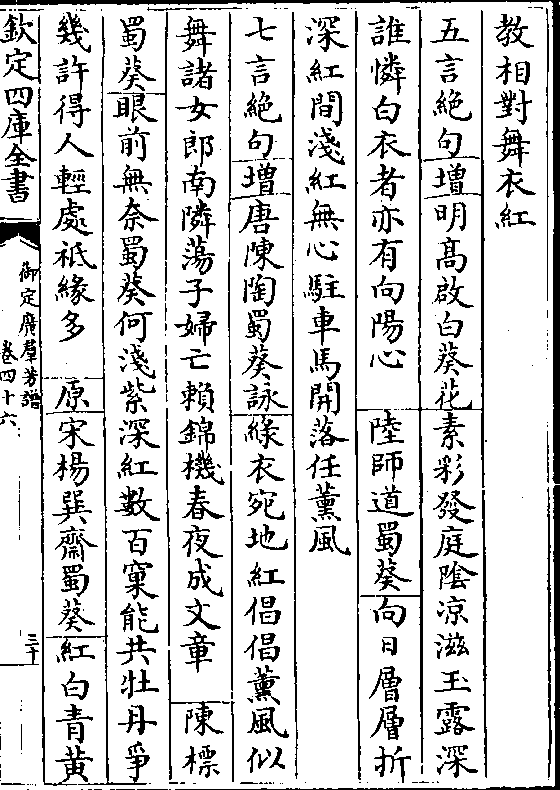 教相對舞衣紅
五言絶句增明髙啟白葵花素彩發庭隂凉滋玉露深
誰憐白衣者亦有向陽心　陸師道蜀葵向日層層折
深紅間淺紅無心駐車馬開落任薰風
七言絶句增唐陳陶蜀葵詠綠衣宛地紅倡倡薰風似
舞諸女郎南隣蕩子婦亡賴錦機春夜成文章　陳標
蜀葵眼前無奈蜀葵何淺紫深紅數百窠能共牡丹爭
幾許得人輕處祇緣多　原宋楊巽齋蜀葵紅白青黄
欽定四庫全書
御定廣羣芳譜
卷四十六
三十